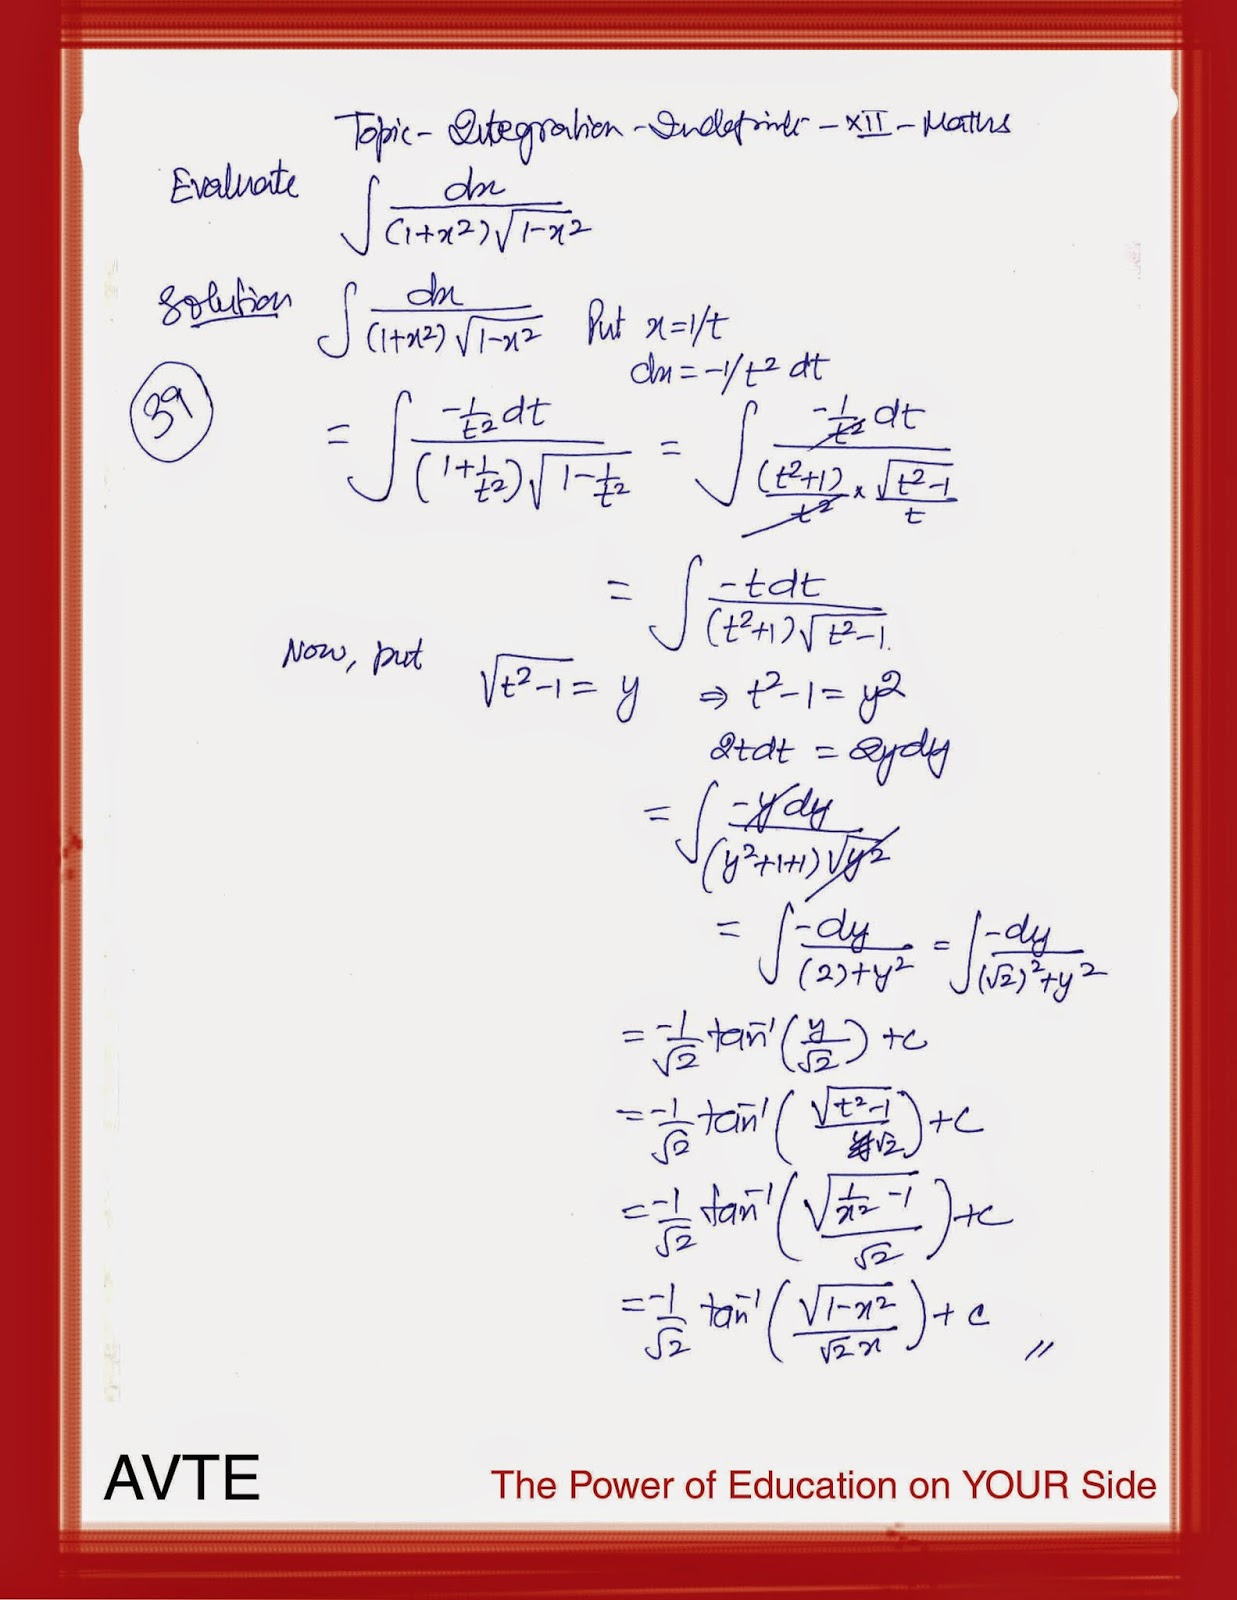 Topic - Integration - Indefinite - XII - Maths
Evaluate ∫ dx / (1+x²)√(1-x²)
Solution ∫ dx / (1+x²)√(1-x²) Put x=1/t
dx = -1/t² dt
39
= ∫ (-1/t² dt) / (1+1/t²)√(1-1/t²) = ∫ (-1/t² dt) / ((t²+1)/t² × √(t²-1)/t)
= ∫ -tdt / (t²+1)√(t²-1).
Now, put √(t²-1) = y ⇒ t²-1 = y²
2tdt = 2ydy
= ∫ -ydy / (y²+1+1)√y²
= ∫ -dy / (2)+y² = ∫ -dy / (√2)²+y²
= -1/√2 tan⁻¹(y/√2) + c
= -1/√2 tan⁻¹(√(t²-1)/√2) + c
= -1/√2 tan⁻¹(√(1/x² -1)/√2) + c
= -1/√2 tan⁻¹(√(1-x²)/√2x) + c //
AVTE The Power of Education on YOUR Side